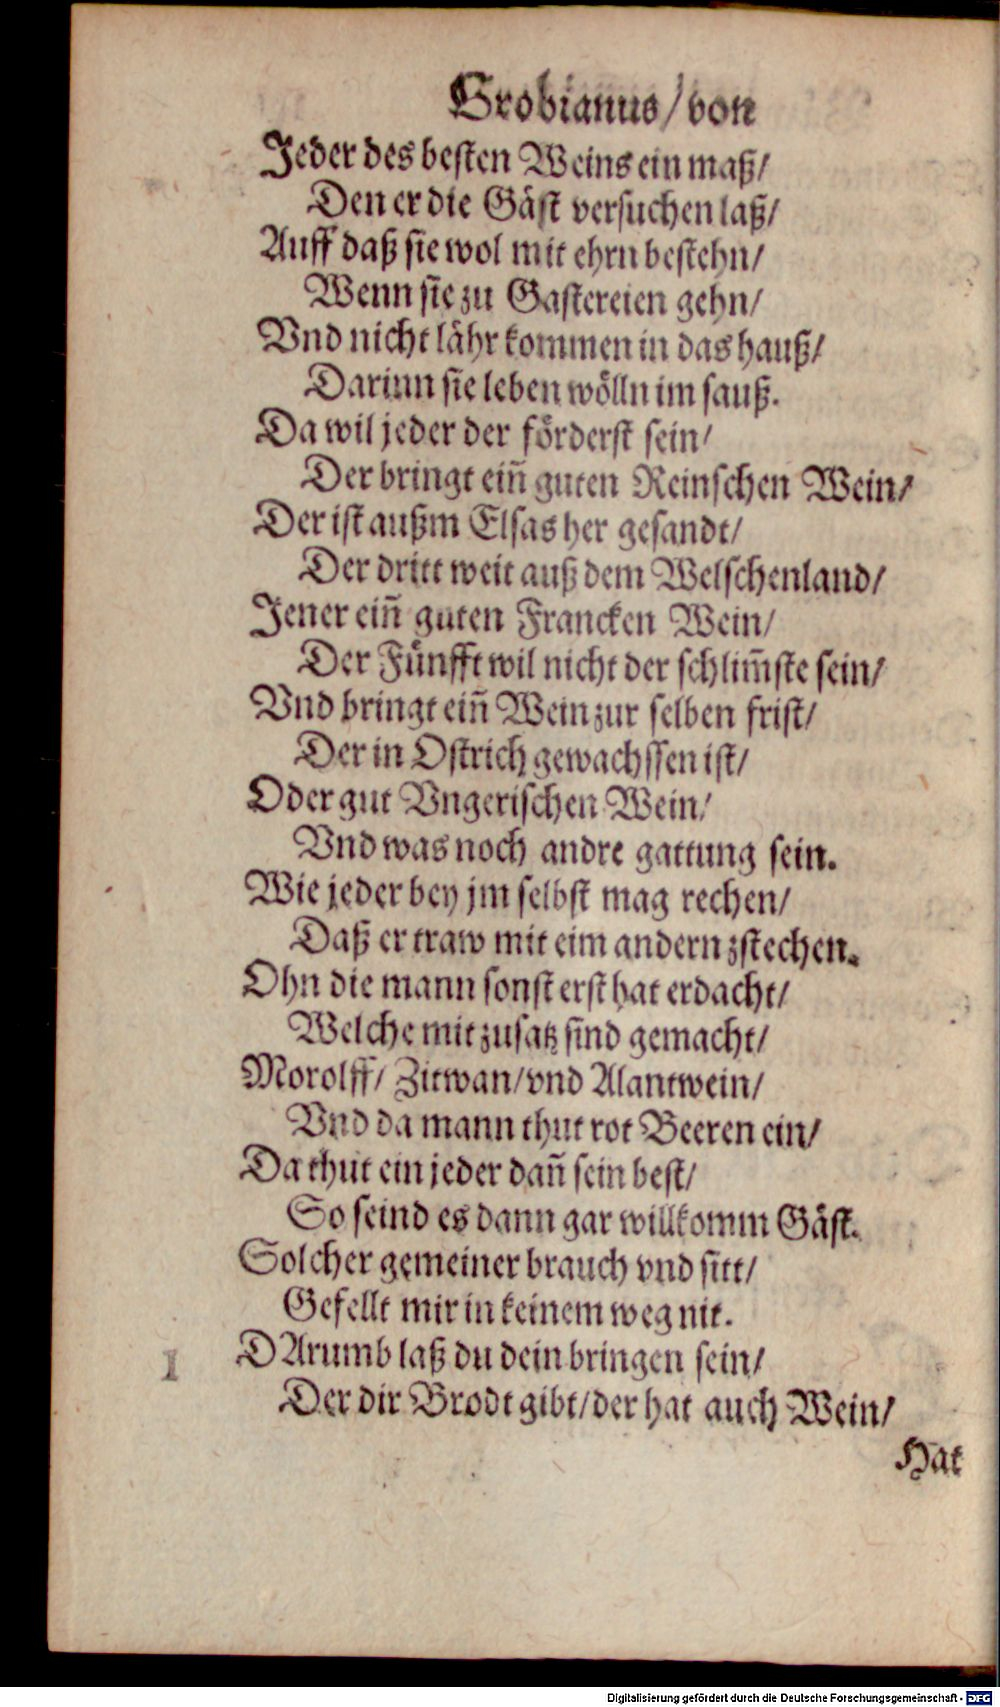 Grobianus/ von
Jeder des besten Weins ein maß/
Den er die Gäst versuchen laß/
Auff daß sie wol mit ehrn bestehn/
Wenn sie zu Gastereien gehn/
Vnd nicht lähr kommen in das hauß/
Darinn sie leben wölln im sauß.
Da wil jeder der förderst sein/
Der bringt ein̄ guten Reinschen Wein/
Der ist außm Elsas her gesandt/
Der dritt weit auß dem Welschenland/
Jener ein̄ guten Francken Wein/
Der Fünfft wil nicht der schlim̄ste sein/
Vnd bringt ein̄ Wein zur selben frist/
Der in Ostrich gewachssen ist/
Oder gut Vngerischen Wein/
Vnd was noch andre gattung sein.
Wie jeder bey jm selbst mag rechen/
Daß er traw mit eim andern zstechen.
Ohn die mann sonst erst hat erdacht/
Welche mit zusatz sind gemacht/
Morolff/ Zitwan/ vnd Alantwein/
Vnd da mann thut rot Beeren ein/
Da thut ein jeder dan̄ sein best/
So seind es dann gar willkomm Gäst.
Solcher gemeiner brauch vnd sitt/
Gefellt mir in keinem weg nit.
1 DArumb laß du dein bringen sein/
Der dir Brodt gibt/ der hat auch Wein/
Hat
Digitalisierung gefördert durch die Deutsche Forschungsgemeinschaft - DFG